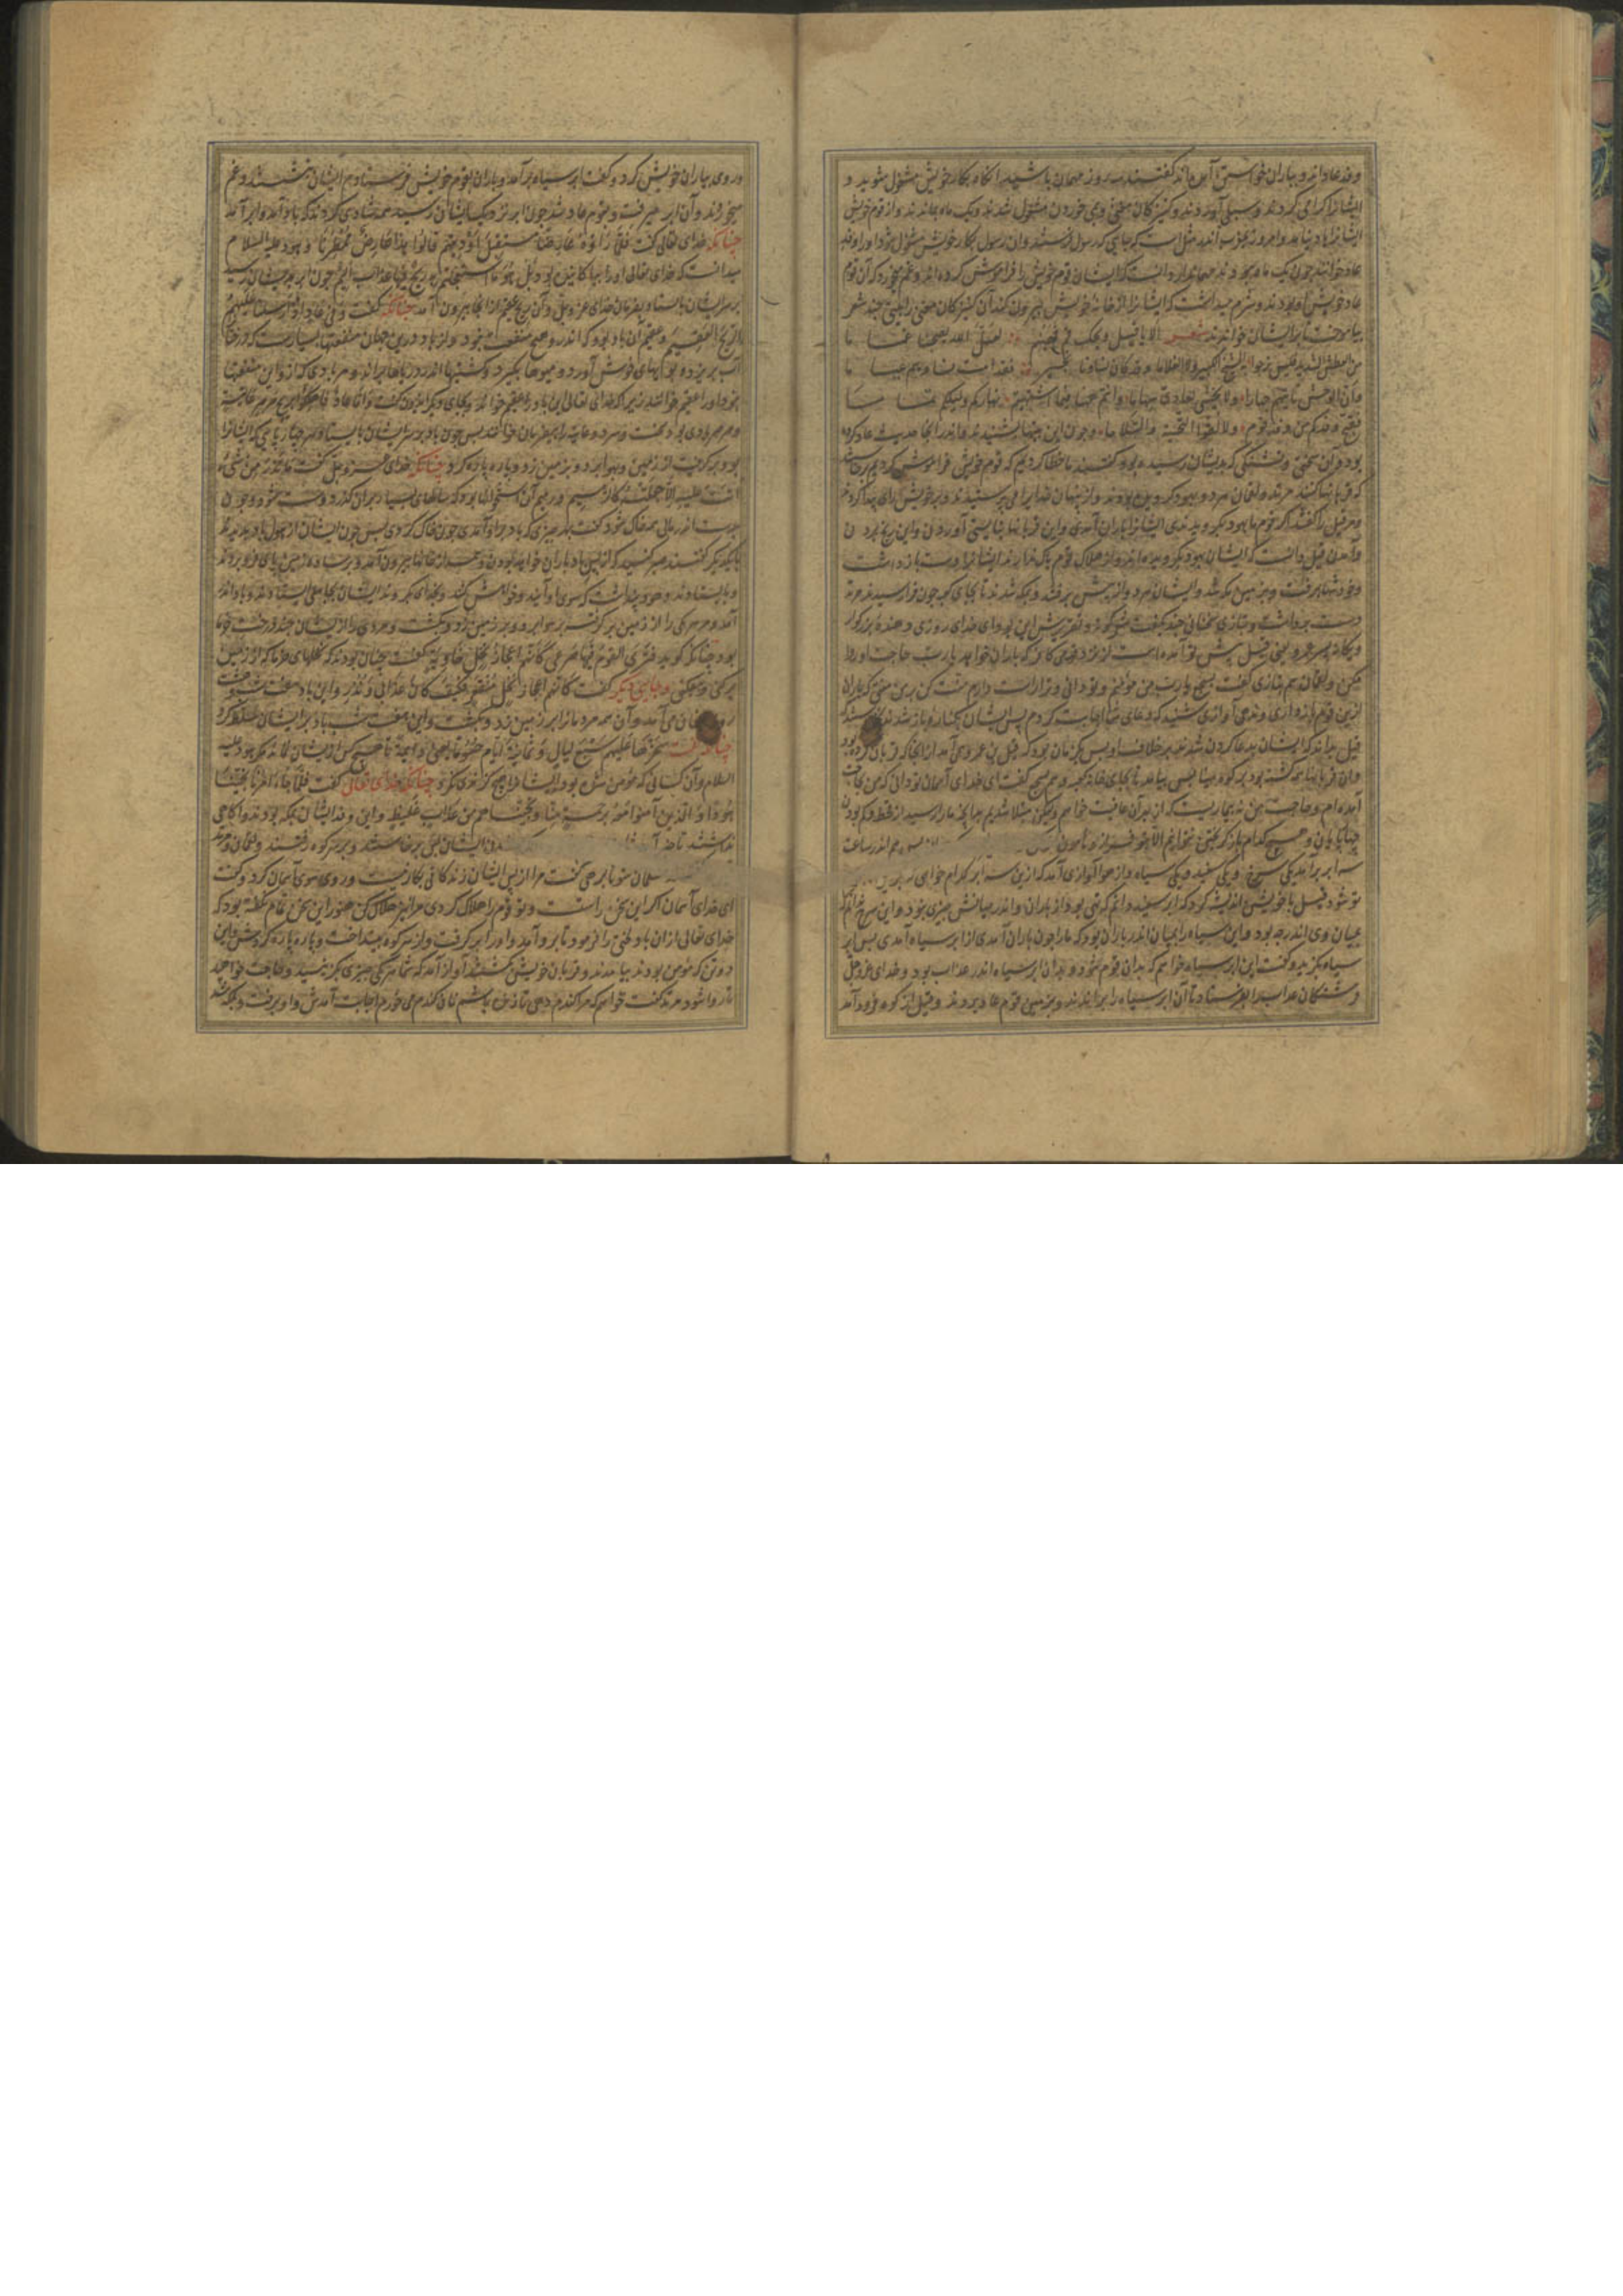 وفد عاد اند و بباران خواستن آمده‌اند گفتند سه روز مهمان باشید آنگاه بکار خویش مشغول شوید و
ایشانرا کرامی کردند و سیکی آوردند و کنیزکان مغنی و می خوردن مشغول شدند و یک ماه بماندند و از قوم خویش
ایشانرا یاد نیامد و امروز مثل است که بجایی که رسول فرستند و آن رسول بکار خویش مشغول شود او را وفد
عاد خوانند چون یک ماه دانست که ایشان قوم خویش را فراموش کرده‌اند و غم بخورد که آن قوم
عاد خویش او بودند و شرم میداشت که ایشانرا از خانه خویش بیرون کند آن کنیزکان مغنی را بیتی چند شعر
بیاموخت تا بر ایشان خواندند شعر الا یا قیل ویحک قم فهینم لعل الله یصبحنا غماما
من العطش الشدید فلیس نرجوا به الشیخ الکبیر ولا الغلاما وقد کان نساؤنا بخیر فقد امست نساؤهم عیاما
وان الوحش تاتیهم جهارا ولا یخشی لعادی سهاما وانتم ههنا فیما اشتهیتم نهارکم ولیلکم تماما
فقبح وفدکم من وفد قوم ولا لقوا التحیة والسلاما و چون این بیتها بشنیدند و اندر آنجا حدیث عاد کرده
بود و آن سختی و تشنگی که بدیشان رسیده بود گفتند ما خطا کردیم که قوم خویش فراموش کردیم برخاستند
که قربانها کنند مرثد و لقمان مرد و بهود گرویده بودند و از پنهان خدایرا می پرستیدند و بر خویش رای پیدا کردند
و مر قیل را گفتند اگر قوم ما بهود بگرویدندی ایشانرا باران آمدی و این قربانها نبایستی آوردن و این رنج بردن
و آمدن قیل دانست که ایشان بهود بگرویده‌اند و از هلاک قوم باک ندارند ایشانرا دست بازداشت
و خود تنها برفت و بزمین مکه شد و ایشان هر دو از پیش برفتند و بمکه شدند تا بجای کعبه چون فرا رسیدند مرثد
دست برداشت و بتازی سخنانی چند بگفت نیکو و تفسیرش این بود ای خدای روزی دهنده بزرگوار
و یگانه پسر عمرو یعنی قیل پیش تو آمده است از نزد قومی کافر که باران خواهد یارب حاجت او روا
مکن و لقمان هم بتازی گفت بسجع یارب من مؤمنم و تو دانی و ترا راست دارم منت کن بر من منتی که باران
ازین قوم بازداری و ندهی آوازی شنید که دعای شما اجابت کردم پس ایشان بکناره باز شدند
قیل بدانکه ایشان بدعا کردن شدند بر خلاف او پس بگریان بود که قیل بن عمرو می‌آمد از آنجا که قربان کرده بود
و آن قربانها بکشته بود بر کوه مینا پس بیامد تا بجای خانه کعبه و هم بسجع گفت ای خدای آسمان تو دانی که من بچه
آمده‌ام و حاجت من نه بیماریست که از بهر آن عافت خواهم و لیکن مبتلا شدیم بدانچه ما را رسید از قحط و کم بودن
اندر ساعت
سه ابر برآمد یکی سرخ و یکی سفید و یکی سیاه و از هوا آوازی آمد که ازین سه ابر کدام خواهی
تو شود قیل با خویشتن اندیشه کرد که ابر سفید دانم که تهی بود از باران و اندر میانش چیزی نبود و این سرخ ندانم
میان وی اندر چه بود و این سیاه را میان اندر باران بود که ما را چون باران آمدی از ابر سیاه آمدی پس ابر
سیاه بگزید و گفت این ابر سیاه خواهم که بدان قوم شود و بدان ابر سیاه اندر عذاب بود و خدای عزوجل
فرشتگان عذاب را بفرستاد تا آن ابر سیاه را براندند و بزمین قوم عاد بردند و قیل از کوه فرود آمد
و روی بیاران خویش کرد و گفت ابر سیاه برآمد و باران بقوم خویش فرستادم ایشان بنشستند و غم
میخوردند و آن ابر میرفت و بقوم عاد شد چون ابر نزدیک ایشان رسید همه شادی کردند که باد آمد و ابر آمد
چنانکه خدای تعالی گفت فلما راوه عارضا مستقبل اودیتهم قالوا هذا عارض ممطرنا و هود علیه السلام
میدانست که خدای تعالی او را بیاگاهانیده بود بل هو ما استعجلتم به ریح فیها عذاب الیم چون ابر بریشان رسید
بر سر ایشان بایستاد بفرمان خدای عزوجل و آن ریح عقیم از آنجا بیرون آمد چنانکه گفت و فی عاد اذ ارسلنا علیهم
الریح العقیم و عقیم آن باد بود که اندرو هیچ منفعت نبود و از باد درین جهان منفعتها بسیارست که درختا
آب بریزد و بوی‌های خوش آورد و میوها بگیرد و کشتیها اندر دریاها براند و هر بادی که از و این منفعتها
نبود او را عقیم خوانند زیرا که خدای تعالی این باد را عقیم خواند و بجای دیگر ایدون گفت و اما عاد فاهلکوا بریح صرصر عاتیة
و صرصر بادی بود سخت و سرد و عاتیه را بیفرمان خوانند پس چون باد بر سر ایشان بایستاد هر چهارپایی که ایشانرا
بود برگرفت از زمین و بهوا برد و بزمین زد و پاره پاره کرد چنانکه خدای عزوجل گفت ما تذر من شیء
اتت علیه الا جعلته کالرمیم و رمیم آن استخوانها بود که سالهای بسیار بران گذرد و پوست شود و چون
بدست اندر مالی همه خاک شود گفت بهر چیزی که باد فراز آمدی چون خاک کردی پس چون ایشان از هول باد بدیدند
با یکدیگر گفتند صبر کنید که از پس باد باران خواهد بودن و همه از خانها بیرون آمدند و بر ساده زمین پای فرو بردند
و بایستادند و هود پنداشت که سوی او آیند و خواهش کنند و بخدای بگروند ایشان بجای بایستادند و باد اندر
آمد و مر هر یکی را از زمین برگرفت بر هوا برد و بر زمین زد و بکشت و هر مردی را از ایشان چند درخت خرما
بود چنانکه گوید فتری القوم فیها صرعی کانهم اعجاز نخل خاویة گفت چنان بودند که نخلهای خرما که از زمین
برکنی و بیفکنی و جای دیگر گفت کانهم اعجاز نخل منقعر فکیف کان عذابی و نذر و این باد هفت شب و هشت
روز چنان می‌آمد و آن همه مردمانرا بر زمین زد و بکشت و این هفت شب باد بر ایشان مسلط کرد
چنانکه گفت سخرها علیهم سبع لیال و ثمانیة ایام حسوما یعنی دایمة تا هیچ کس ازیشان نماند مگر هود علیه
السلام و آن کسانی که مؤمن شده بودند ایشانرا هیچ گزندی نکرد چنانکه خدای تعالی گفت فلما جاء امرنا نجینا
هودا و الذین آمنوا معه برحمة منا و نجیناهم من عذاب غلیظ و این وفد ایشان بمکه بودند و آگاهی
نداشتند تا ایشان برخاستند و بر سر کوه رفتند و لقمان و مرثد
گفت مرا از پس ایشان زندگانی بکار نیست و روی سوی آسمان کرد و گفت
ای خدای آسمان اگر این سخن راست و تو قوم را هلاک کردی مرا نیز هلاک کن هنوز این سخن تمام نگفته بود که
خدای تعالی از آن باد لختی را فرمود تا برو آمد و او را برگرفت و از سر کوه بینداخت و پاره پاره کردش و این
دو تن که مؤمن بودند بیامدند و قربان خویش بکشتند آواز آمد که شما هر یکی چیزی بگزینید و حاجت خواهید
تا روا شود مرثد گفت خواهم که مرا گندم دهی تا زنده باشم نان گندم می‌خورم اجابت آمدش و او برفت و بمکه شد